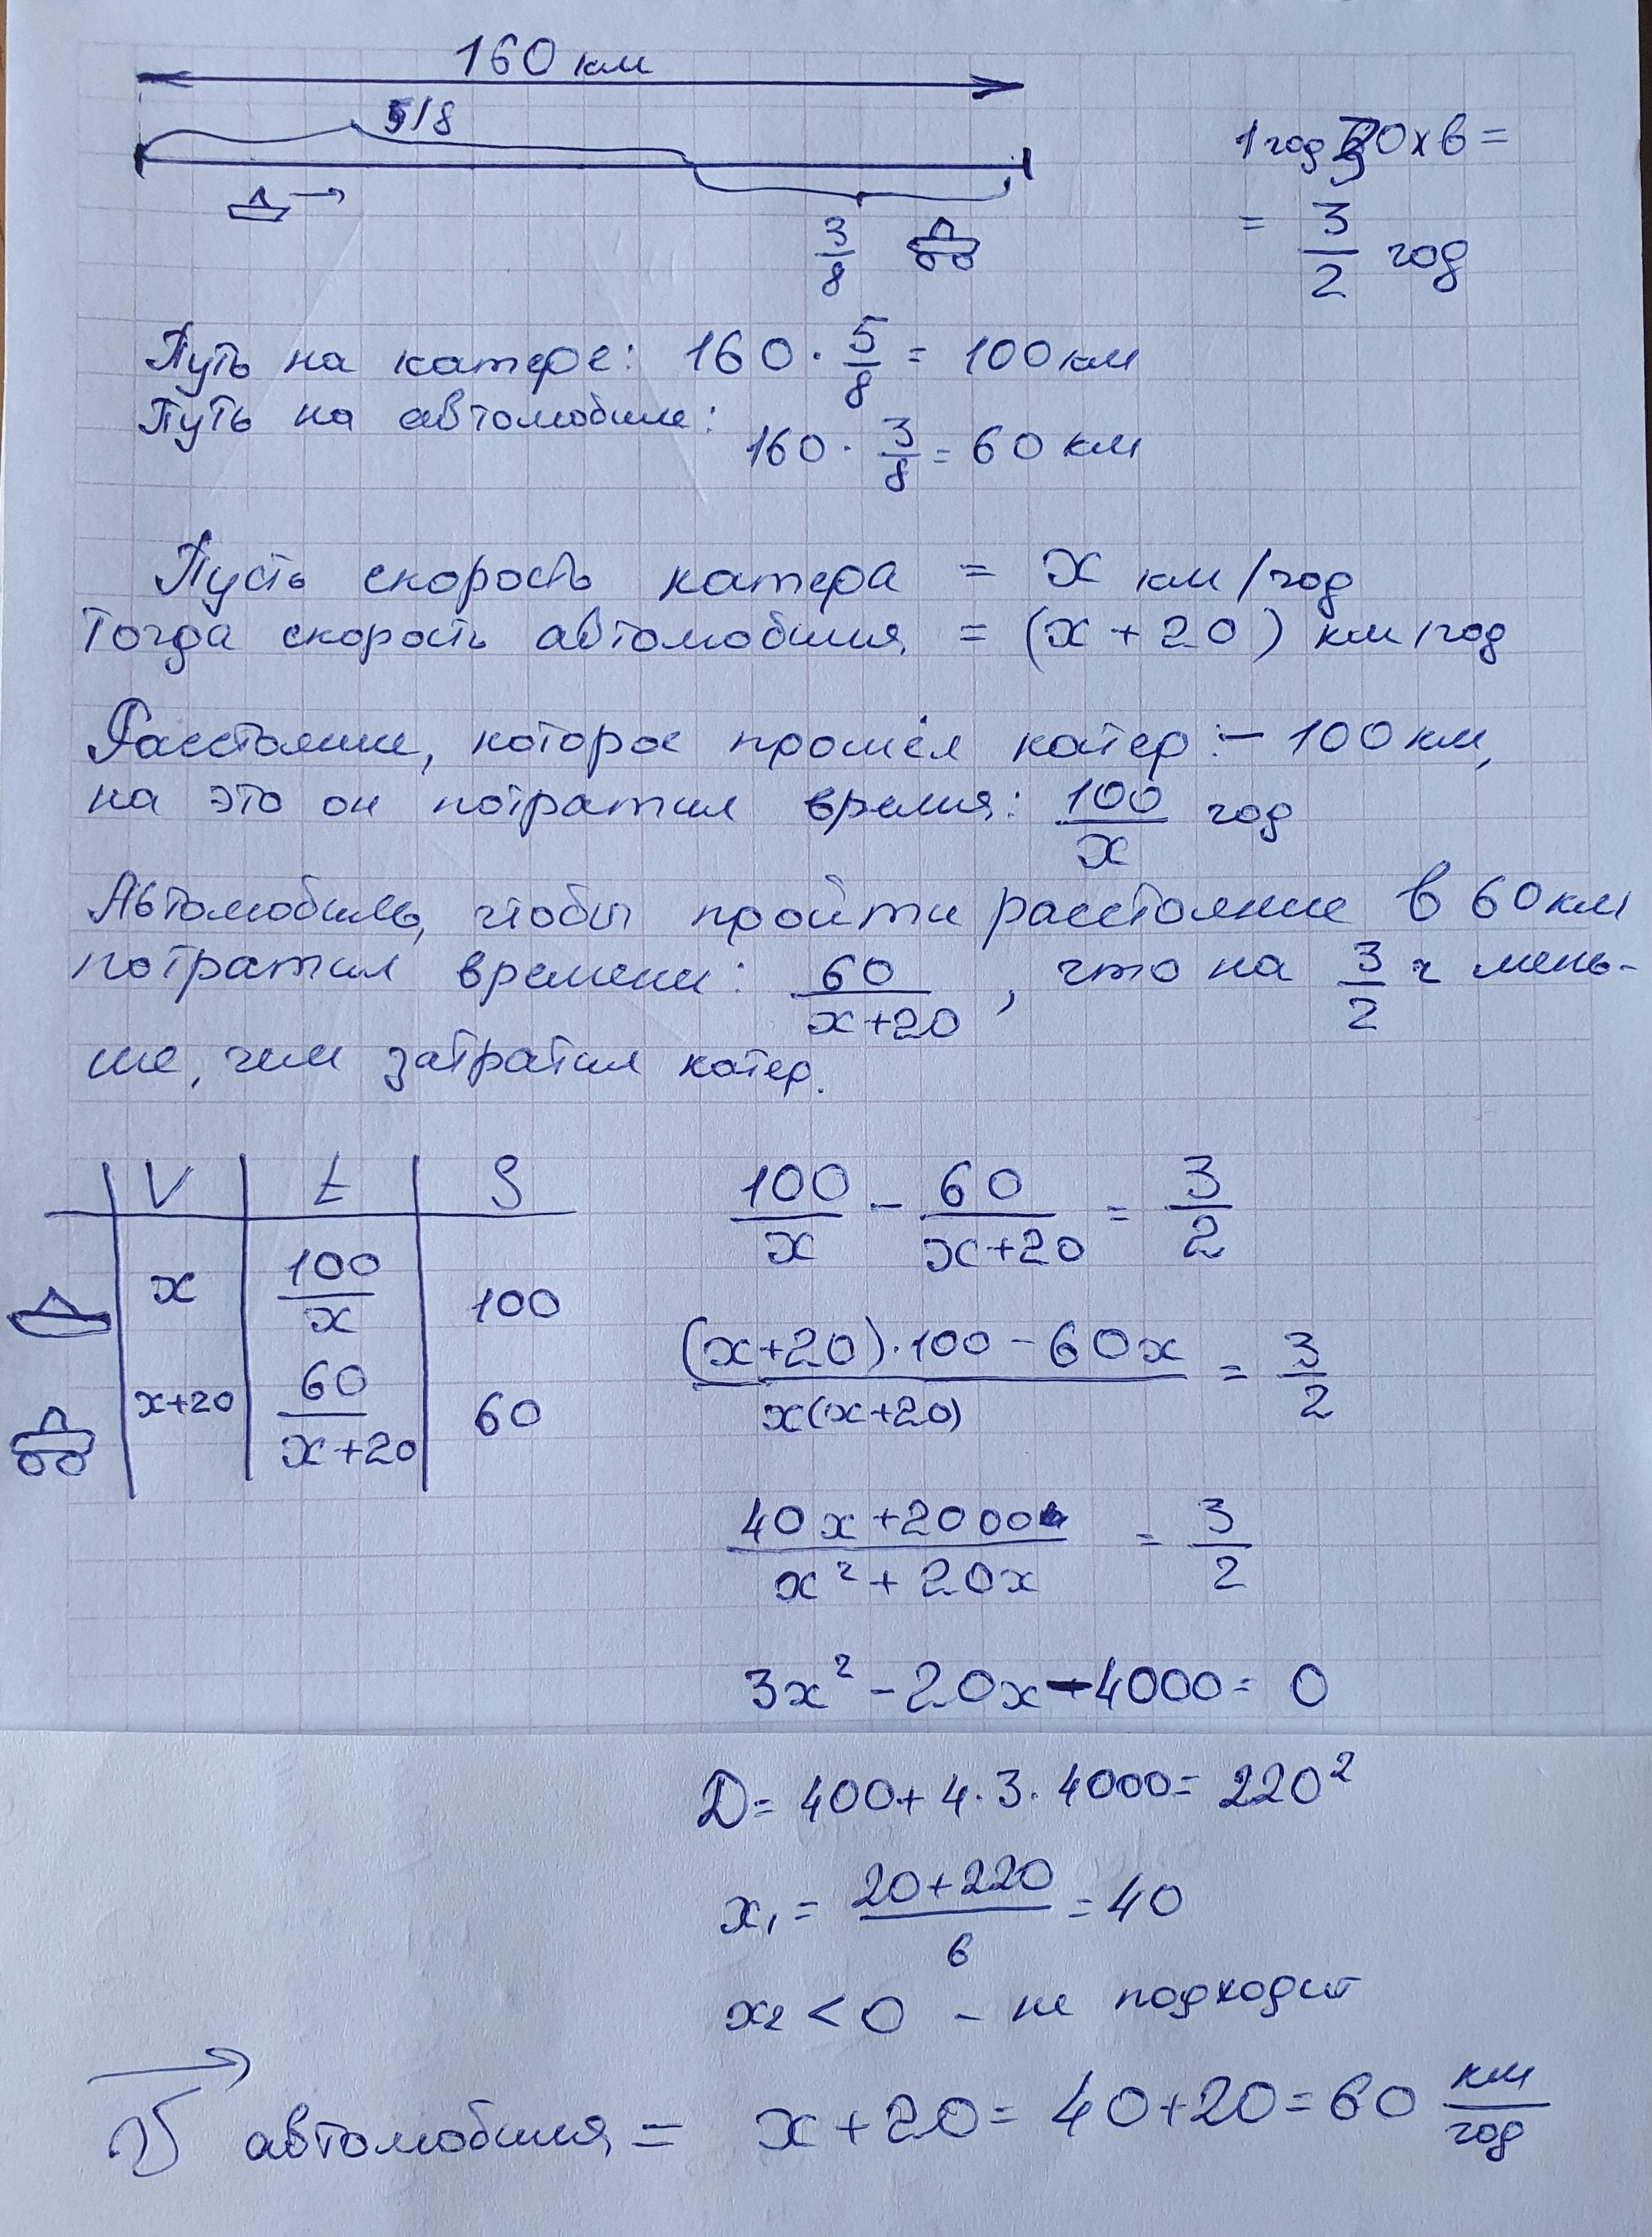 160 км
5/8
1 год 30 хв =
= 3/2 год
3/8
Путь на катере: 160 · 5/8 = 100 км
Путь на автомобиле:
160 · 3/8 = 60 км
Пусть скорость катера = x км/год
Тогда скорость автомобиля = (x + 20) км/год
Расстояние, которое прошёл катер :– 100 км,
на это он потратил время: 100/x год
Автомобиль, чтобы пройти расстояние в 60 км
потратил времени: 60/(x+20), что на 3/2 ч мень-
ше, чем затратил катер.
V t S
x 100/x 100
x+20 60/(x+20) 60
100/x - 60/(x+20) = 3/2
((x+20)·100 - 60x)/(x(x+20)) = 3/2
(40x + 2000)/(x² + 20x) = 3/2
3x² - 20x - 4000 = 0
D = 400 + 4·3·4000 = 220²
x₁ = (20+220)/6 = 40
x₂ < 0 - не подходит
V автомобиля = x + 20 = 40 + 20 = 60 км/год